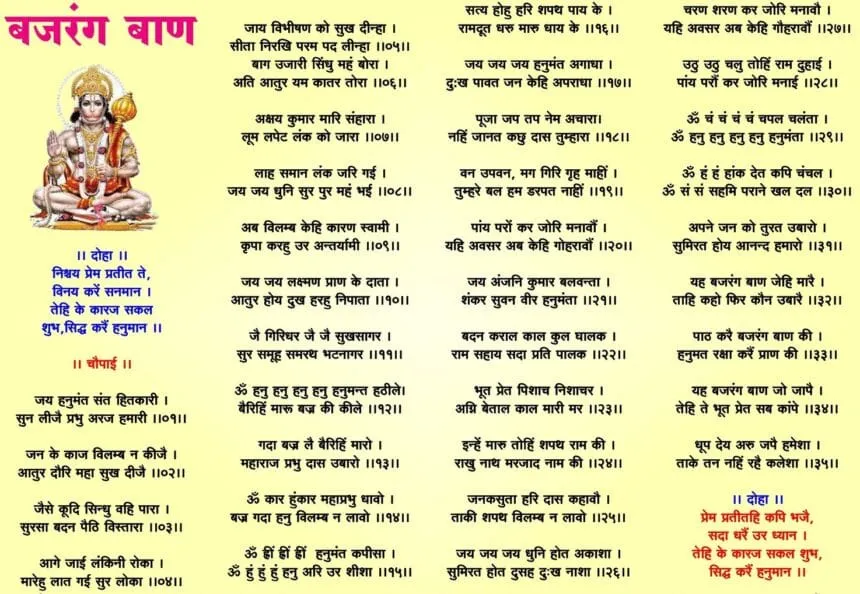 बजरंग बाण
।। दोहा ।।
निश्चय प्रेम प्रतीत ते,
विनय करें सनमान ।
तेहि के कारज सकल
शुभ,सिद्ध करैं हनुमान ।।
।। चौपाई ।।
जय हनुमंत संत हितकारी ।
सुन लीजै प्रभु अरज हमारी ।।०१।।
जन के काज विलम्ब न कीजै ।
आतुर दौरि महा सुख दीजै ।।०२।।
जैसे कूदि सिन्धु वहि पारा ।
सुरसा बदन पैठि विस्तारा ।।०३।।
आगे जाई लंकिनी रोका ।
मारेहु लात गई सुर लोका ।।०४।।
जाय विभीषण को सुख दीन्हा ।
सीता निरखि परम पद लीन्हा ।।०५।।
बाग उजारी सिंधु महं बोरा ।
अति आतुर यम कातर तोरा ।।०६।।
अक्षय कुमार मारि संहारा ।
लूम लपेट लंक को जारा ।।०७।।
लाह समान लंक जरि गई ।
जय जय धुनि सुर पुर महं भई ।।०८।।
अब विलम्ब केहि कारण स्वामी ।
कृपा करहु उर अन्तर्यामी ।।०९।।
जय जय लक्ष्मण प्राण के दाता ।
आतुर होय दुख हरहु निपाता ।।१०।।
जै गिरिधर जै जै सुखसागर ।
सुर समूह समरथ भटनागर ।।११।।
ॐ हनु हनु हनु हनु हनुमन्त हठीले।
बैरिहिं मारू बज्र की कीले ।।१२।।
गदा बज्र लै बैरिहिं मारो ।
महाराज प्रभु दास उबारो ।।१३।।
ॐ कार हुंकार महाप्रभु धावो ।
बज्र गदा हनु विलम्ब न लावो ।।१४।।
ॐ ह्रीं ह्रीं ह्रीं हनुमंत कपीसा ।
ॐ हुं हुं हुं हनु अरि उर शीशा ।।१५।।
सत्य होहु हरि शपथ पाय के ।
रामदूत धरु मारु धाय के ।।१६।।
जय जय जय हनुमंत अगाधा ।
दुःख पावत जन केहि अपराधा ।।१७।।
पूजा जप तप नेम अचारा।
नहिं जानत कछु दास तुम्हारा ।।१८।।
वन उपवन, मग गिरि गृह माहीं ।
तुम्हरे बल हम डरपत नाहीं ।।१९।।
पांय परों कर जोरि मनावौं ।
यहि अवसर अब केहि गोहरावौं ।।२०।।
जय अंजनि कुमार बलवन्ता ।
शंकर सुवन वीर हनुमंता ।।२१।।
बदन कराल काल कुल घालक ।
राम सहाय सदा प्रति पालक ।।२२।।
भूत प्रेत पिशाच निशाचर ।
अग्नि बेताल काल मारी मर ।।२३।।
इन्हें मारु तोहिं शपथ राम की ।
राखु नाथ मरजाद नाम की ।।२४।।
जनकसुता हरि दास कहावौ ।
ताकी शपथ विलम्ब न लावो ।।२५।।
जय जय जय धुनि होत अकाशा ।
सुमिरत होत दुसह दुःख नाशा ।।२६।।
चरण शरण कर जोरि मनावौ ।
यहि अवसर अब केहि गौहरावौं ।।२७।।
उठु उठु चलु तोहिं राम दुहाई ।
पांय परौं कर जोरि मनाई ।।२८।।
ॐ चं चं चं चं चपल चलंता ।
ॐ हनु हनु हनु हनु हनुमंता ।।२९।।
ॐ हं हं हांक देत कपि चंचल ।
ॐ सं सं सहमि पराने खल दल ।।३०।।
अपने जन को तुरत उबारो ।
सुमिरत होय आनन्द हमारो ।।३१।।
यह बजरंग बाण जेहि मारै ।
ताहि कहो फिर कौन उबारै ।।३२।।
पाठ करै बजरंग बाण की ।
हनुमत रक्षा करैं प्राण की ।।३३।।
यह बजरंग बाण जो जापै ।
तेहि ते भूत प्रेत सब कांपे ।।३४।।
धूप देय अरु जपै हमेशा ।
ताके तन नहिं रहै कलेशा ।।३५।।
।। दोहा ।।
प्रेम प्रतीतहि कपि भजै,
सदा धरैं उर ध्यान ।
तेहि के कारज सकल शुभ,
सिद्ध करैं हनुमान ।।